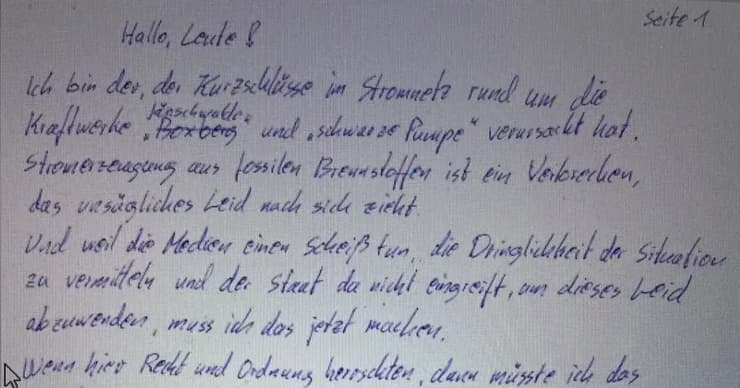 Seite 1
Hallo, Leute!
Ich bin der, der Kurzschlüsse im Stromnetz rund um die
Jänschwalde
Kraftwerke „Boxberg“ und „schwarze Pumpe“ verursacht hat.
Stromerzeugung aus fossilen Brennstoffen ist ein Verbrechen,
das unsägliches Leid nach sich zieht.
Und weil die Medien einen Scheiß tun, die Dringlichkeit der Situation
zu vermitteln und der Staat da nicht eingreift, um dieses Leid
abzuwenden, muss ich das jetzt machen.
Wenn hier Recht und Ordnung herrschten, dann müsste ich das